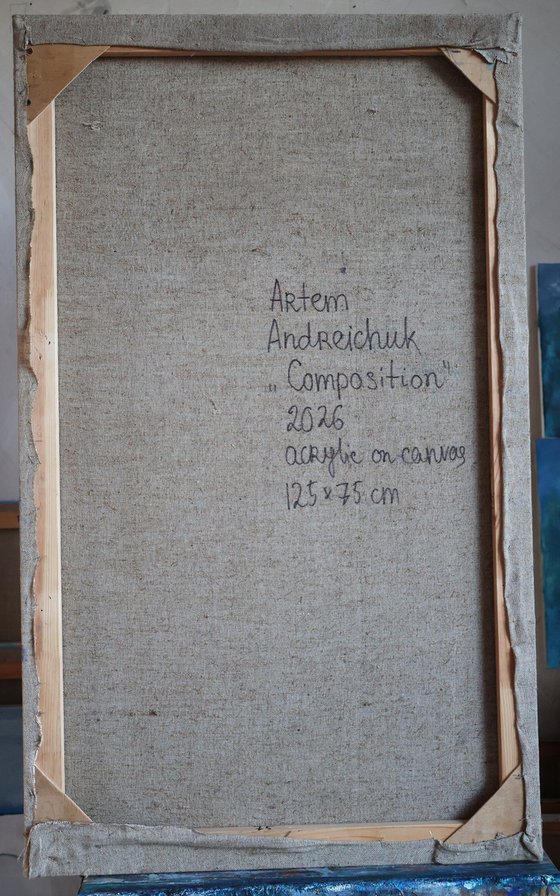 Artem
Andreichuk
„Composition"
2026
acrylic on canvas
125 x 75 cm